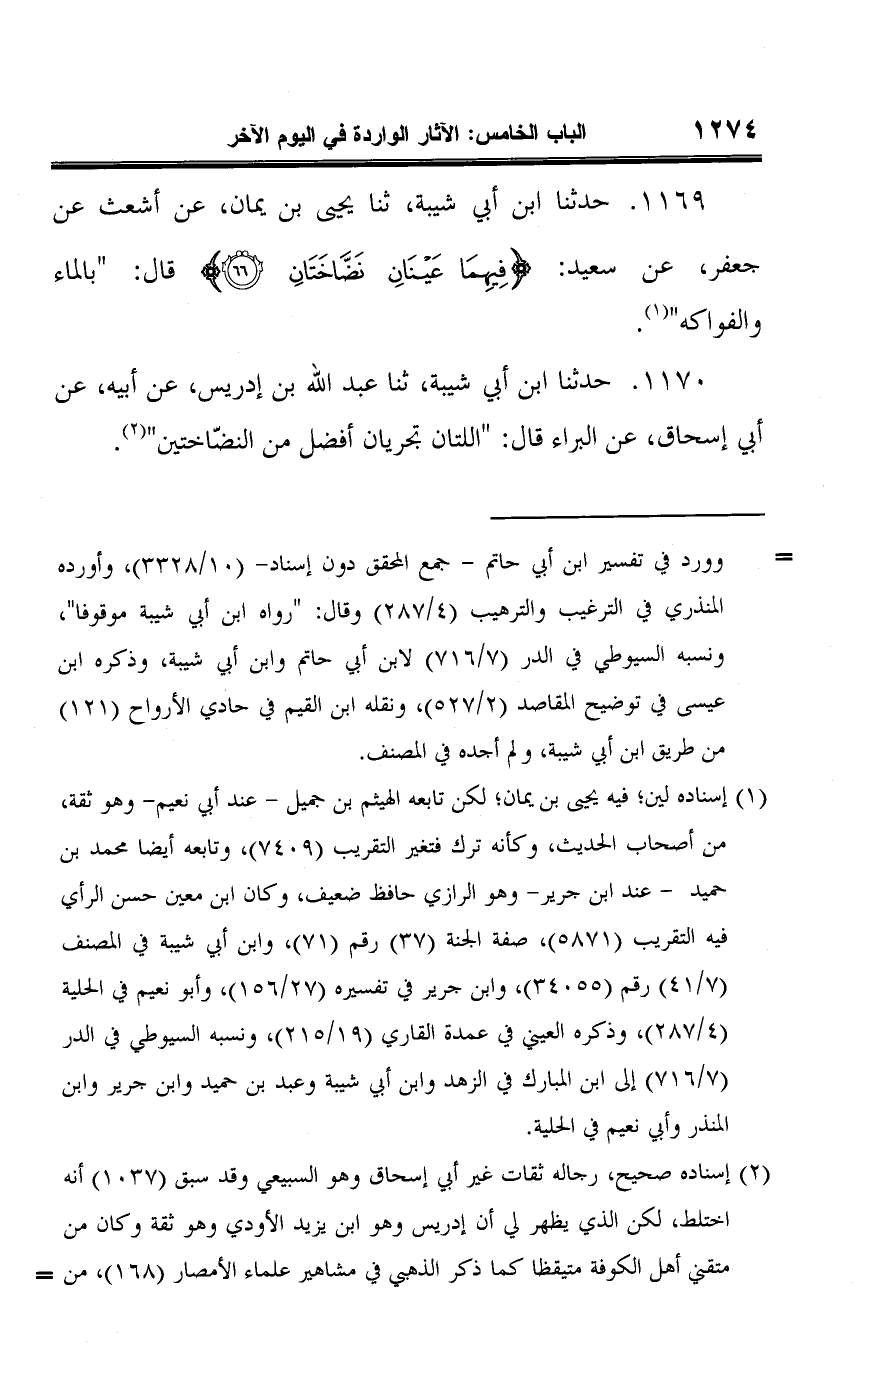 ١٢٧٤ الباب الخامس: الآثار الواردة في اليوم الآخر
١١٦٩. حدثنا ابن أبي شيبة، ثنا يحيى بن يمان، عن أشعث عن
جعفر، عن سعيد: ﴿فِيهِمَا عَيْنَانِ نَضَّاخَتَانِ ٦٦﴾ قال: "بالماء
والفواكه"(١).
١١٧٠. حدثنا ابن أبي شيبة، ثنا عبد الله بن إدريس، عن أبيه، عن
أبي إسحاق، عن البراء قال: "اللتان تجريان أفضل من النضّاختين"(٢).
= وورد في تفسير ابن أبي حاتم - جمع المحقق دون إسناد- (٣٣٢٨/١٠)، وأورده
المنذري في الترغيب والترهيب (٢٨٧/٤) وقال: "رواه ابن أبي شيبة موقوفا"،
ونسبه السيوطي في الدر (٧١٦/٧) لابن أبي حاتم وابن أبي شيبة، وذكره ابن
عيسى في توضيح المقاصد (٥٢٧/٢)، ونقله ابن القيم في حادي الأرواح (١٢١)
من طريق ابن أبي شيبة، ولم أجده في المصنف.
(١) إسناده لين؛ فيه يحيى بن يمان؛ لكن تابعه الهيثم بن جميل - عند أبي نعيم- وهو ثقة،
من أصحاب الحديث، وكأنه ترك فتغير التقريب (٧٤٠٩)، وتابعه أيضا محمد بن
حميد - عند ابن جرير- وهو الرازي حافظ ضعيف، وكان ابن معين حسن الرأي
فيه التقريب (٥٨٧١)، صفة الجنة (٣٧) رقم (٧١)، وابن أبي شيبة في المصنف
(٤١/٧) رقم (٣٤٠٥٥)، وابن جرير في تفسيره (١٥٦/٢٧)، وأبو نعيم في الحلية
(٢٨٧/٤)، وذكره العيني في عمدة القاري (٢١٥/١٩)، ونسبه السيوطي في الدر
(٧١٦/٧) إلى ابن المبارك في الزهد وابن أبي شيبة وعبد بن حميد وابن جرير وابن
المنذر وأبي نعيم في الحلية.
(٢) إسناده صحيح، رجاله ثقات غير أبي إسحاق وهو السبيعي وقد سبق (١٠٣٧) أنه
اختلط، لكن الذي يظهر لي أن إدريس وهو ابن يزيد الأودي وهو ثقة وكان من
متقني أهل الكوفة متيقظا كما ذكر الذهبي في مشاهير علماء الأمصار (١٦٨)، من =